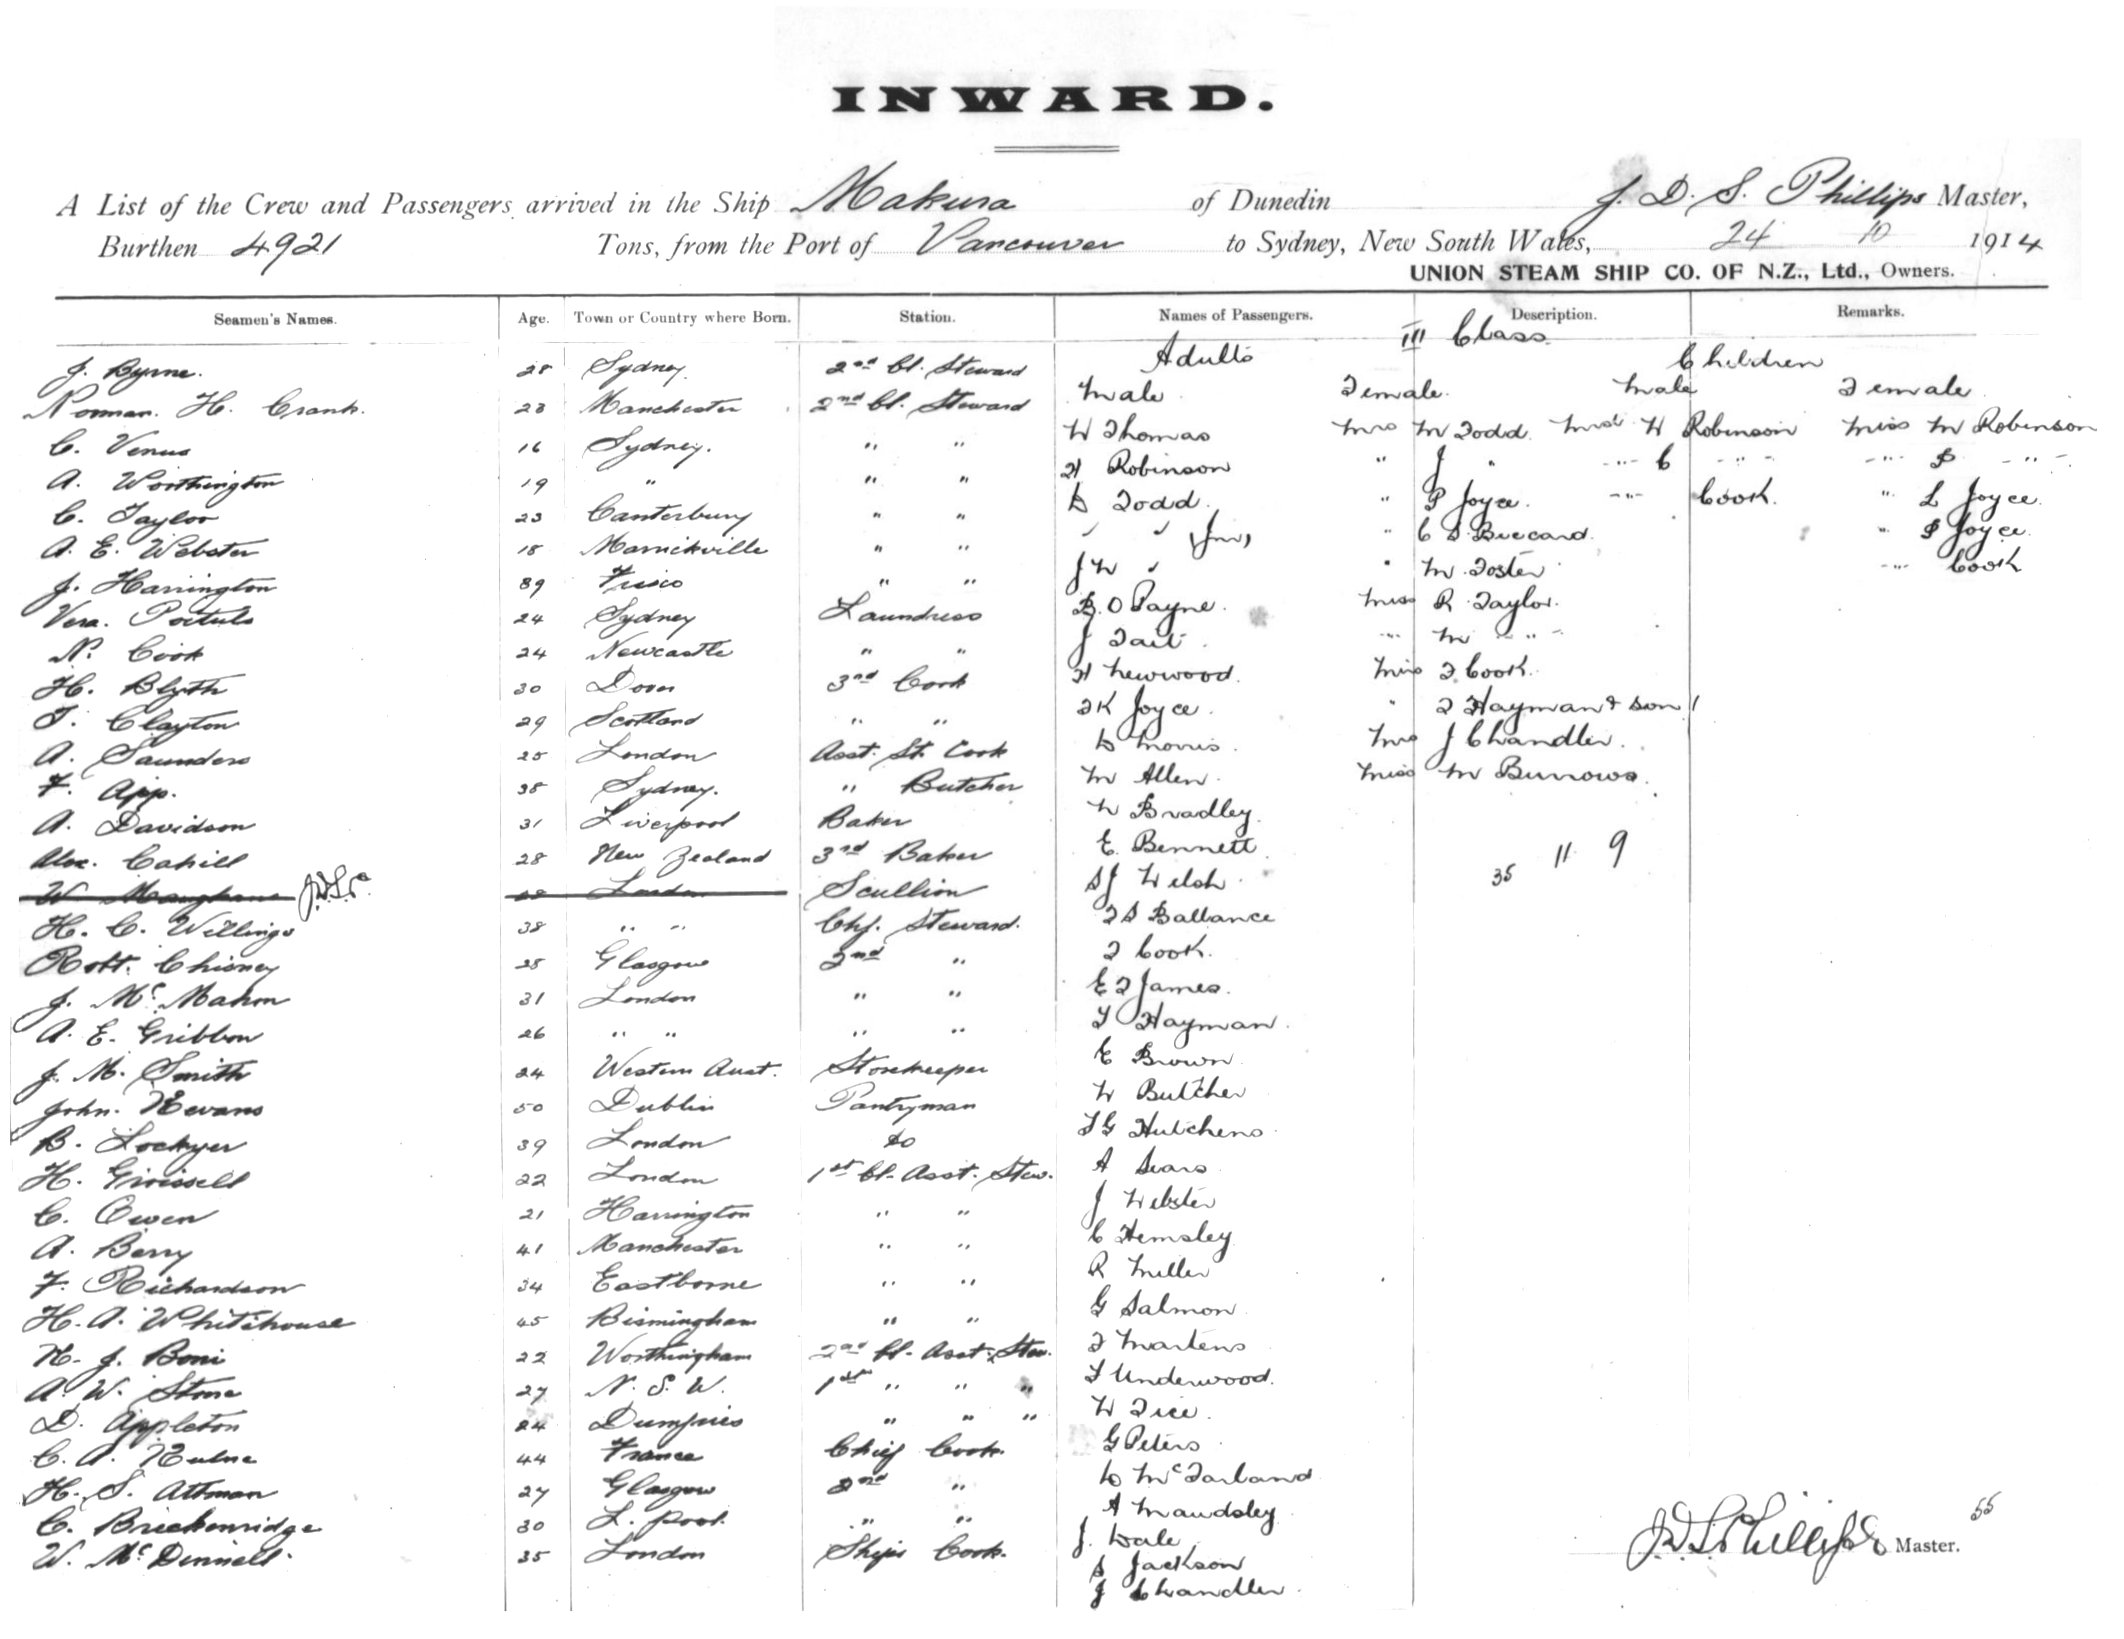 INWARD.
A List of the Crew and Passengers arrived in the Ship Makura of Dunedin J. D. S. Phillips Master,
Burthen 4921 Tons, from the Port of Vancouver to Sydney, New South Wales, 24 10 1914
UNION STEAM SHIP CO. OF N.Z., Ltd., Owners.
Seamen's Names. Age. Town or Country where Born. Station. Names of Passengers. Description. Remarks.
III Class
Adults Children
Male Female Male Female
J. Byrne. 28 Sydney. 2nd Cl. Steward
Norman. H. Crank. 23 Manchester 2nd Cl. Steward
C. Venus 16 Sydney. " " W Thomas Mrs M Todd Mast W Robinson Miss M Robinson
A. Worthington 19 " " " H Robinson " J " -"- C -"- -"- S -"-
C. Taylor 23 Canterbury " " D Todd. " P Joyce. -"- Cook. " L Joyce.
A. E. Webster 18 Marrickville " " " " (Jnr) " C S Buccard. " S Joyce
J. Harrington 39 Frisco " " J W " " M Foster -"- Cook
Vera. 24 Sydney Laundress B. O Payne. Miss R Taylor.
N. Cook 24 Newcastle " " J Tait -"- M -"-
H. Blyth 30 Dover 3rd Cook H Newwood. Miss F Cook.
T. Clayton 29 Scotland " " F K Joyce. " F Hayman & son 1
A. Saunders 25 London Asst. St. Cook D Morris. Mrs J Chandler.
F. App. 38 Sydney. " Butcher M Allen. Miss M Burrows.
A. Davidson 31 Liverpool Baker W Bradley.
Alex. Cahill 28 New Zealand 3rd Baker E. Bennett 35 11 9
W London Scullion S J Welsh
H. C. Willings 38 " " Chf. Steward. F S Ballance
Robt. Chisney 28 Glasgow 2nd " F Cook.
J. McMahon 31 London " " E F James.
A. E. Gribbon 26 " " " " T Hayman.
J. M. Smith 24 Western Aust. Storekeeper E Brown
John. Nevans 50 Dublin Pantryman W Butcher
B. Lockyer 39 London do T G Hutchens
H. Grissell 22 London 1st Cl. Asst. Stew. A Sears
C. Owen 21 Harrington " " J Webster
A. Berry 41 Manchester " " C Hemsley
F. Richardson 34 Eastborne " " R Miller
H. A. Whitehouse 45 Birmingham " " G Salmon
H. J. Boni 22 Worthingham 2nd Cl. Asst. Stew. F Martens
A. W. Stone 27 N. S. W. 1st " " " T Underwood.
D. Appleton 24 Dumfries " " " W Tice.
C. A. Hulme 44 France Chief Cook. G Peters
H. S. Attman 27 Glasgow 2nd " D McFarland
C. Brickenridge 30 L. pool. " " A Maudsley
W. McDinnell 35 London Ships Cook. J. Dale
S Jackson
J Chandler
55
J.D.S. Phillips Master.